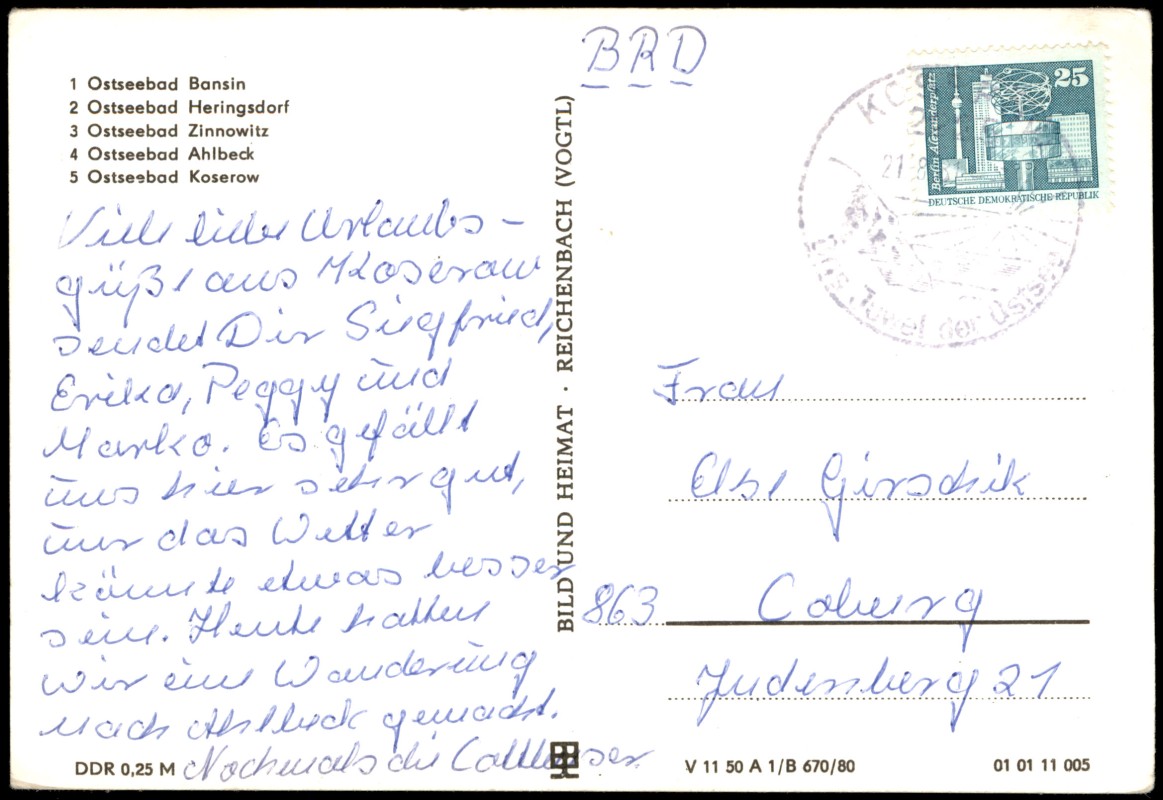 1 Ostseebad Bansin
2 Ostseebad Heringsdorf
3 Ostseebad Zinnowitz
4 Ostseebad Ahlbeck
5 Ostseebad Koserow
Viele liebe Urlaubs-
grüße aus Koserow
sendet Dir Siegfried,
Erika, Peggy und
Marko. Es gefällt
uns hier sehr gut,
nur das Wetter
könnte etwas besser
sein. Heute hatten
wir eine Wanderung
nach Ahlbeck gemacht.
Nochmals die Cottbuser
DDR 0,25 M
BILD UND HEIMAT · REICHENBACH (VOGTL)
BRD
25
Berlin, Alexanderplatz
DEUTSCHE DEMOKRATISCHE REPUBLIK
21.8.81
Juwel der Ostsee
Frau
Else Girschik
863 Coburg
Judenberg 21
V 11 50 A 1/B 670/80
01 01 11 005